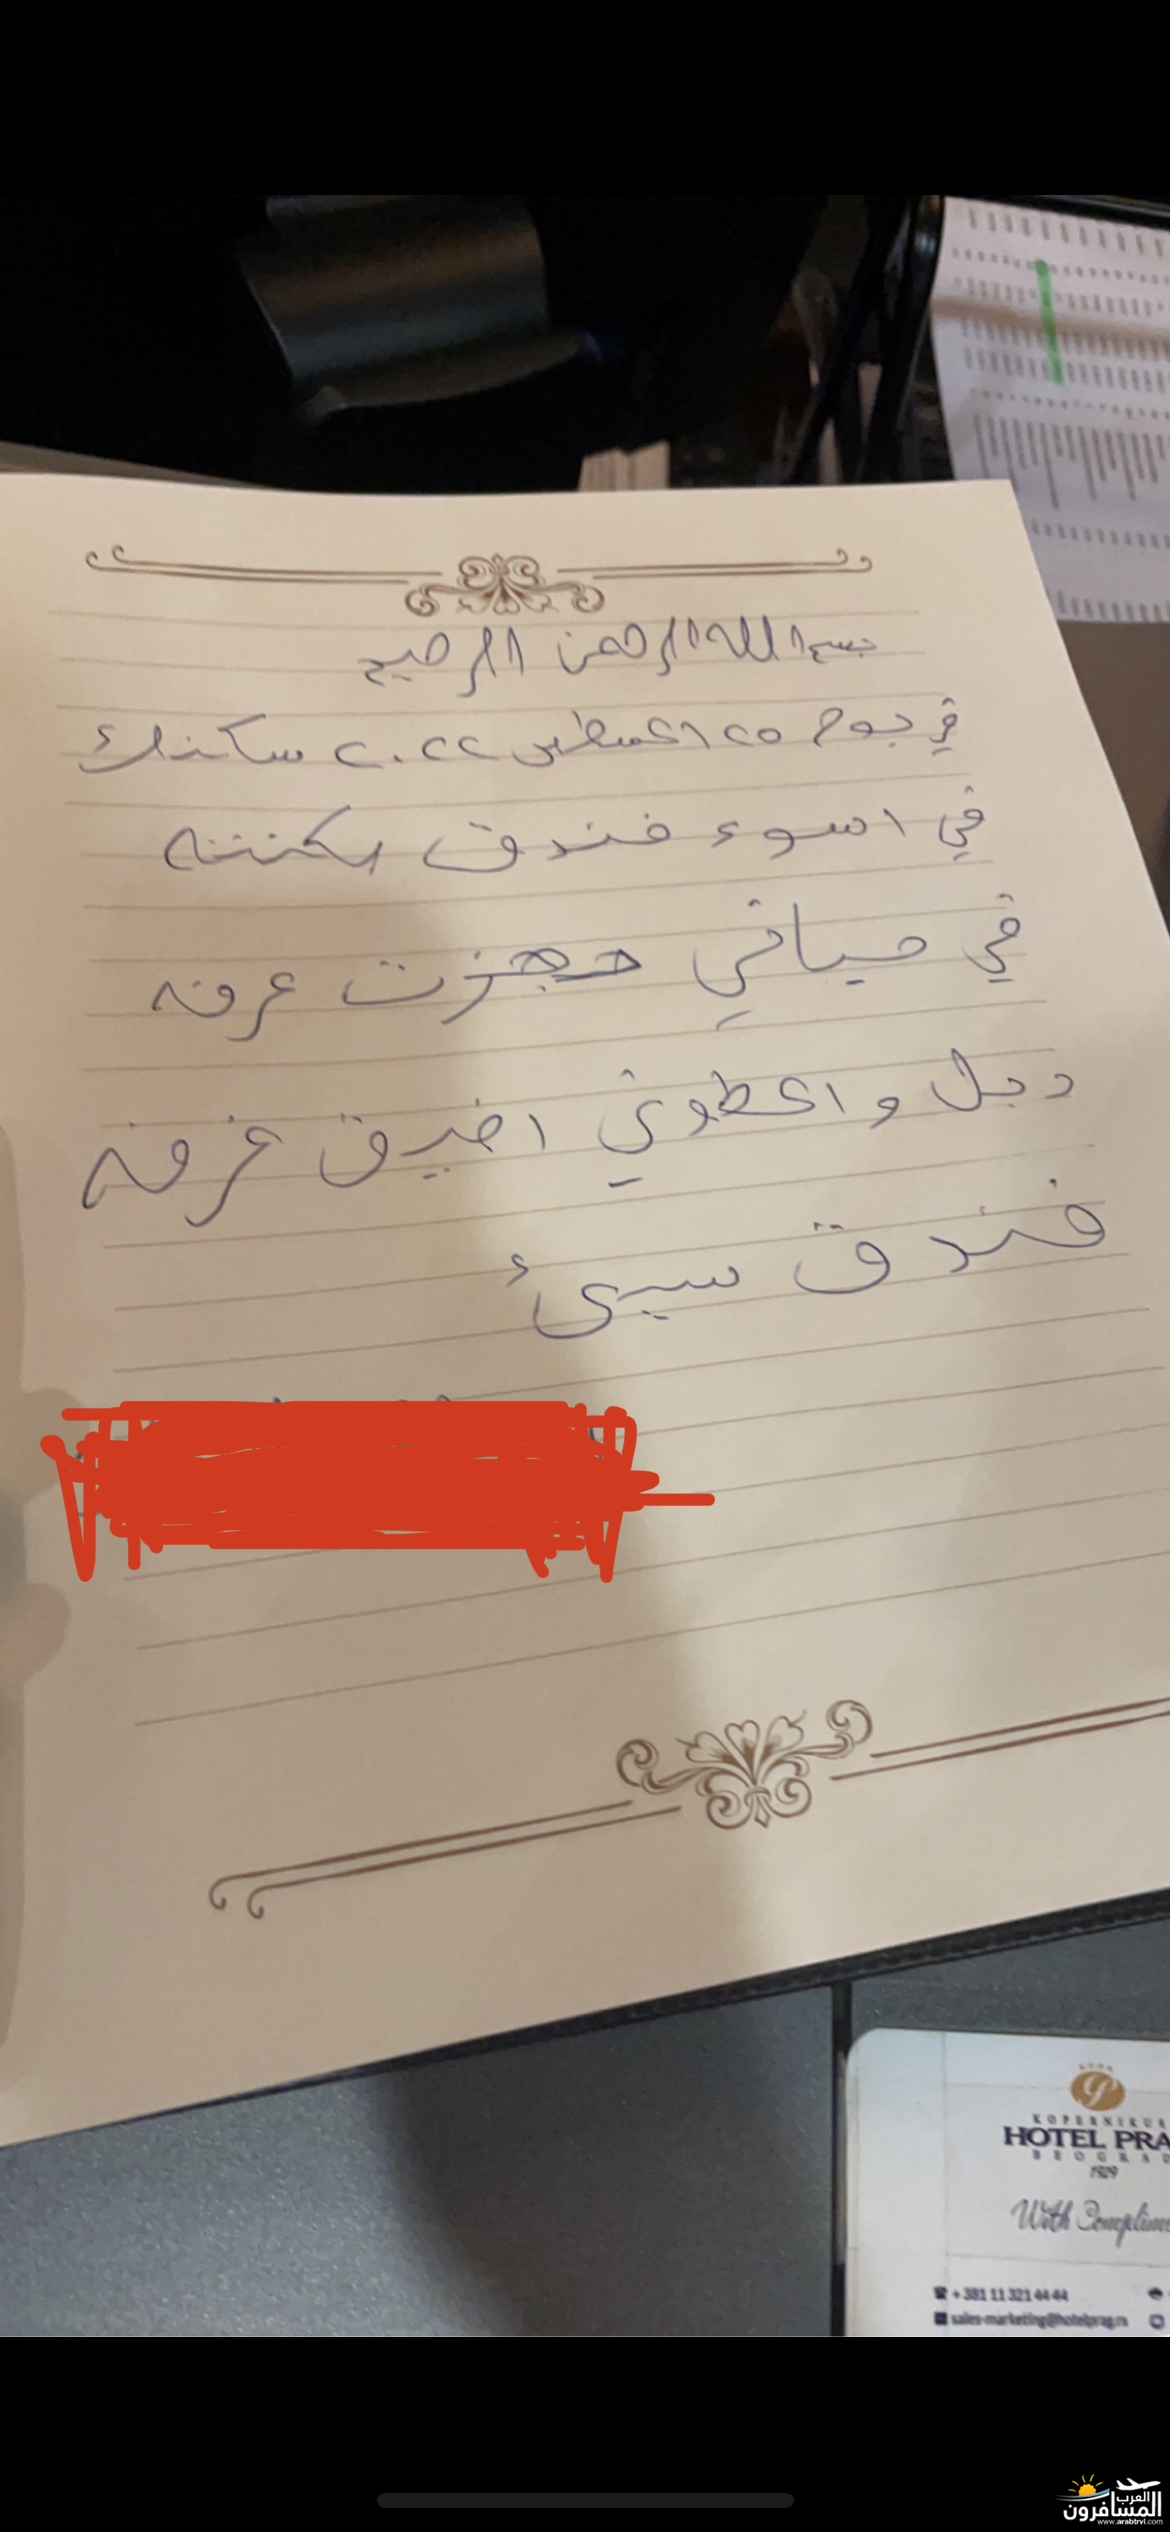 بسم الله الرحمن الرحيم
في يوم ٢٥ اغسطس ٢٠٢٢ سكنت
في اسوء فندق سكنته
في حياتي حجزت غرفه
دبل واعطوني اضيق غرفه
فندق سيئ
KOPERNIKUS
HOTEL PRA
BEOGRAD
1929
With Complime
+ 381 11 321 44 44
sales-marketing@hotelprag.rs
العرب
المسافرون
www.arabtrvl.com